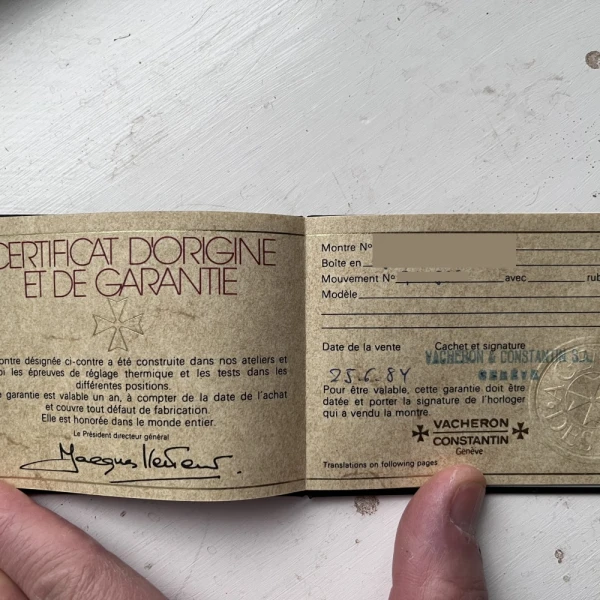 CERTIFICAT D'ORIGINE
ET DE GARANTIE
ontre désignée ci-contre a été construite dans nos ateliers et
bi les épreuves de réglage thermique et les tests dans les
différentes positions.
e garantie est valable un an, à compter de la date de l'achat
et couvre tout défaut de fabrication.
Elle est honorée dans le monde entier.
Le Président directeur général
Montre Nº
Boîte en
Mouvement Nº avec rub
Modèle
Date de la vente Cachet et signature
VACHERON & CONSTANTIN
GENÈVE
25.6.84
Pour être valable, cette garantie doit être
datée et porter la signature de l'horloger
qui a vendu la montre.
VACHERON
CONSTANTIN
Genève
Translations on following pages